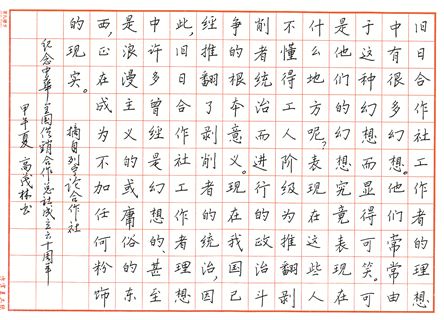 旧日合作社工作者的理想
中有很多幻想。他们常常由
于这种幻想而显得可笑。可
是他们的幻想究竟表现在
什么地方呢?表现在这些人
不懂得工人阶级为推翻剥
削者统治而进行的政治斗
争的根本意义。现在我国已
经推翻了剥削者的统治,因
此,旧日合作社工作者理想
中许多曾经是幻想的、甚至
是浪漫主义的或庸俗的东
西,正在成为不加任何粉饰
的现实。
摘自列宁论合作社
纪念中华全国供销合作总社成立六十周年
甲午夏 高茂林书